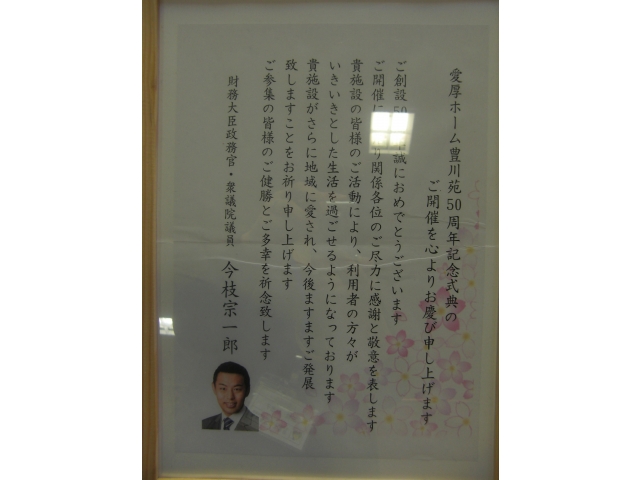 愛厚ホーム豊川苑50周年記念式典の
ご開催を心よりお慶び申し上げます
ご創設50 誠におめでとうございます
ご開催に り関係各位のご尽力に感謝と敬意を表します
貴施設の皆様のご活動により、利用者の方々が
いきいきとした生活を過ごせるようになっております
貴施設がさらに地域に愛され、今後ますますご発展
致しますことをお祈り申し上げます
ご参集の皆様のご健勝とご多幸を祈念致します
財務大臣政務官・衆議院議員 今枝宗一郎